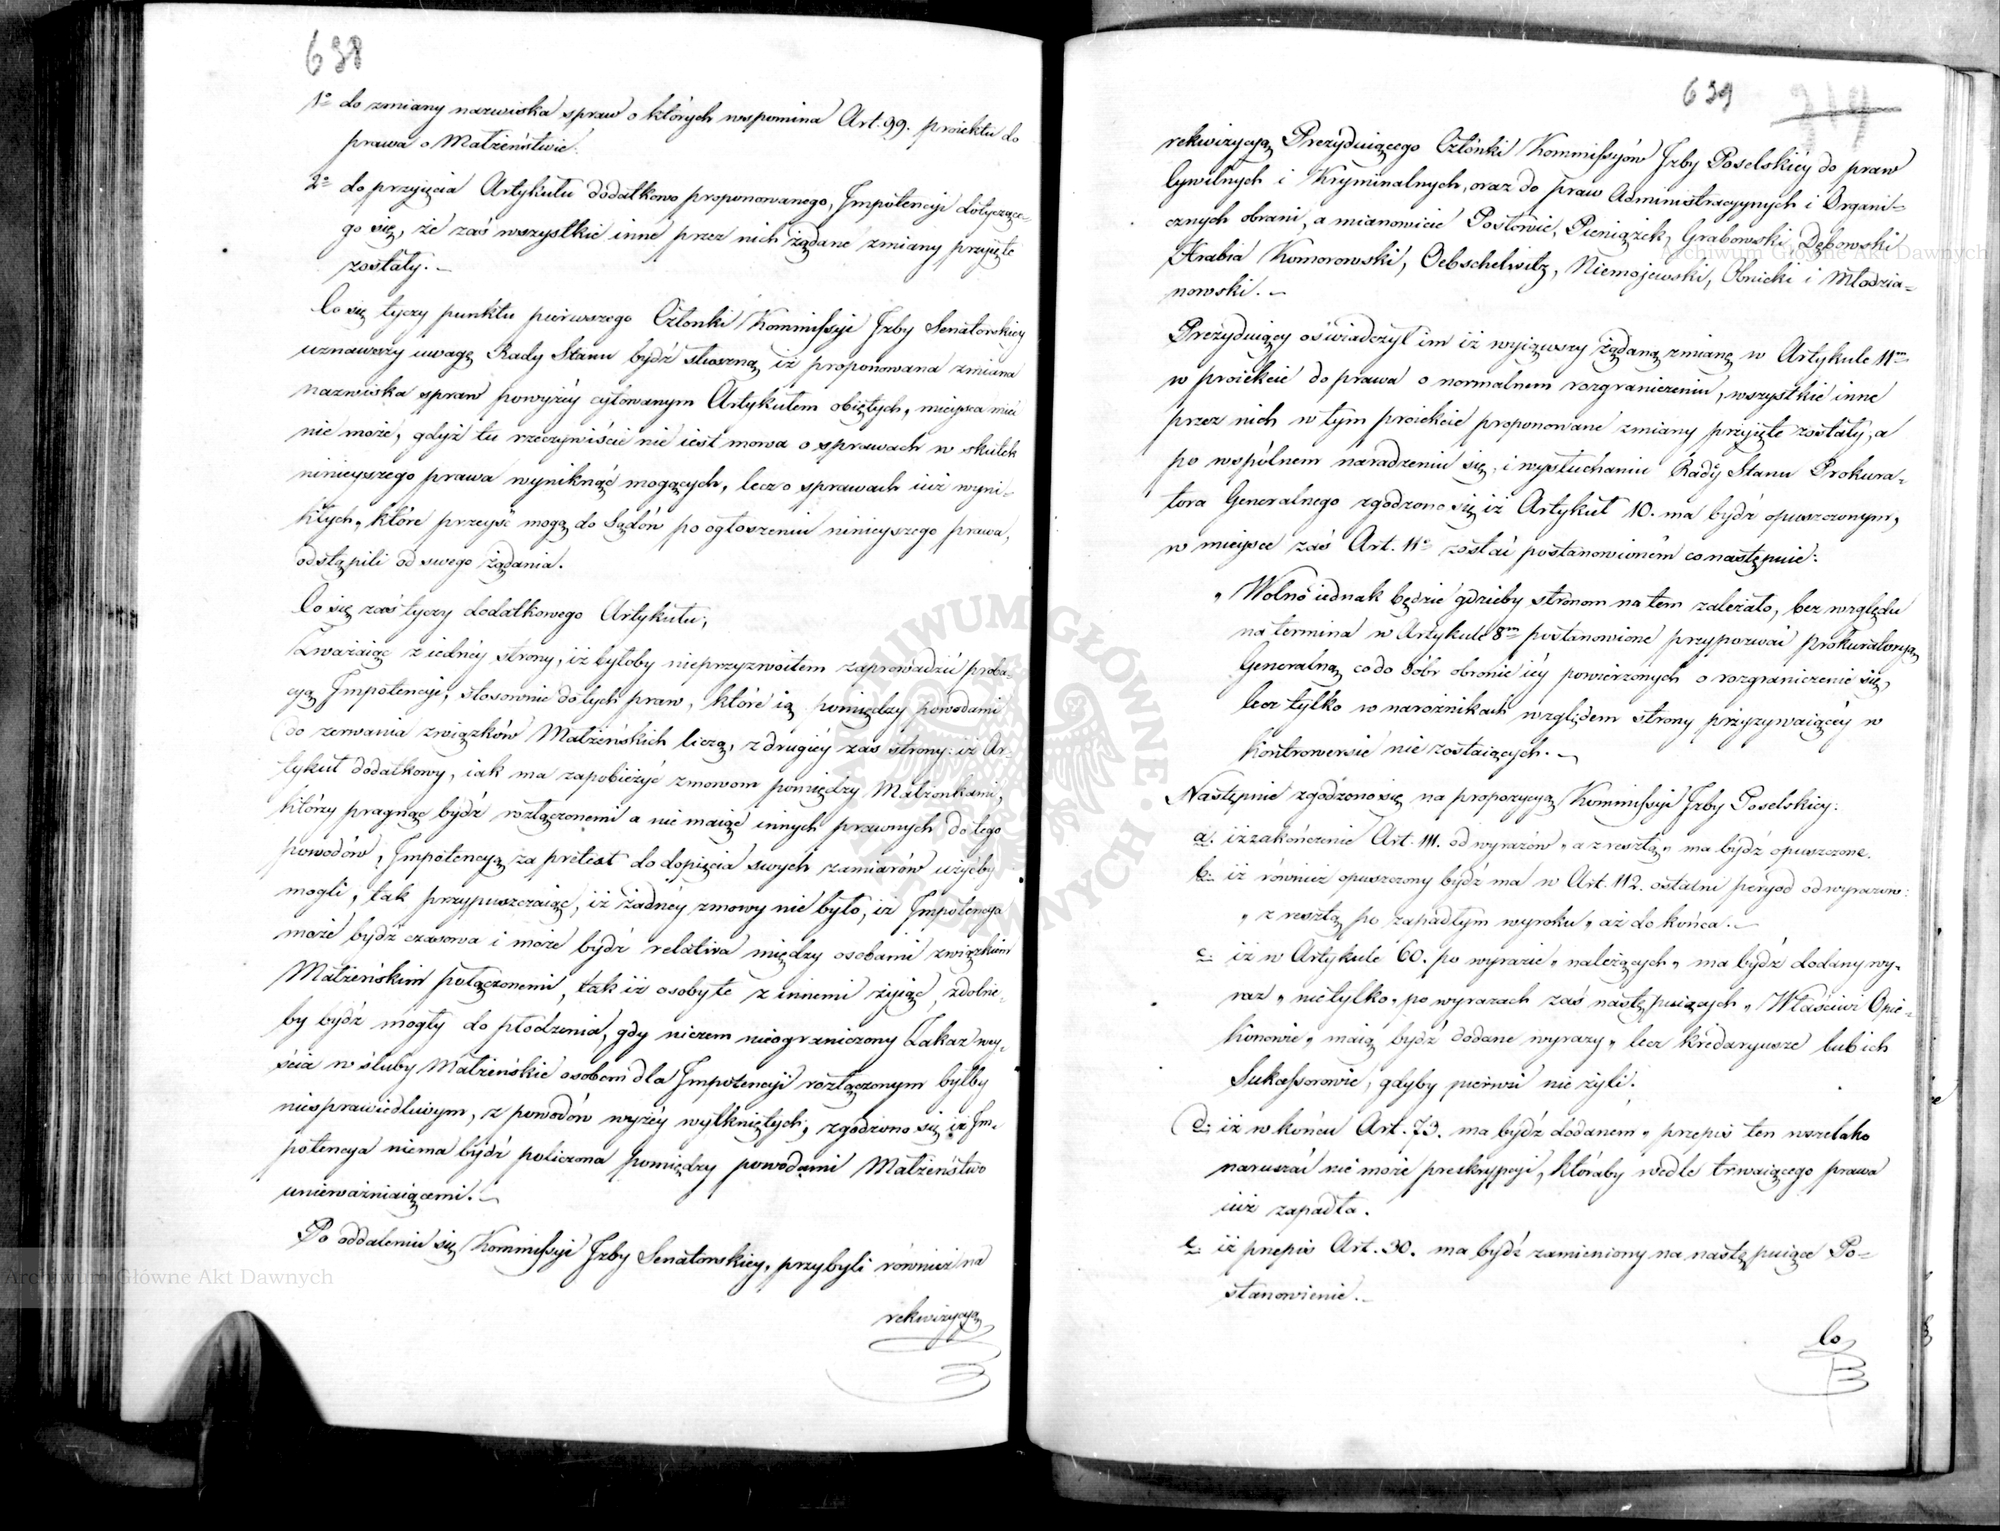 638
1º do zmiany nazwiska spraw o których wspomina Art. 99. proiektu do
prawa o Małżeństwie.
2º do przyięcia Artykułu dodatkowo proponowanego, Impotencyi dotyczące-
go się, że zaś wszystkie inne przez nich żądane zmiany przyięte
zostały.
Co się tyczy punktu pierwszego Członki Kommissyi Izby Senatorskiey
uznawszy uwagę Rady Stanu bydź słuszną iż proponowana zmiana
nazwiska spraw powyżéy cytowanym Artykułem obiętych, mieysca mieć
nie może, gdyż tu rzeczywiście nie iest mowa o sprawach w skutek
ninieyszego prawa wyniknąć mogących, lecz o sprawach iuż wyni-
kłych, które przeyść mogą do Sądów po ogłoszeniu ninieyszego prawa,
odstąpili od swego żądania.
Co się zaś tyczy dodatkowego Artykułu,
Zważaiąc z iednéy strony, iż byłoby nieprzyzwoitem zaprowadzić proba-
cyą Impotencyi, stosownie do tych praw, które ią pomiędzy powodami
do zerwania związków Małżeńskich liczą, z drugiéy zaś strony: iż Ar-
tykuł dodatkowy, iak ma zapobieżyć zmowom pomiędzy Małżonkami,
którzy pragnąc bydź rozłączonemi a nie maiąc innych prawnych do tego
powodów, Impotencyą za pretext do dopięcia swych zamiarów użyćby
mogli, tak przypuszczaiąc, iż żadnéy zmowy nie było, iż Impotencya
może bydź czasowa i może bydź relativa między osobami związkiem
Małżeńskim połączonemi, tak iż osoby te z innemi żyiąc, zdolne-
by bydź mogły do płodzenia, gdy niczem nieograniczony Zakaz wey-
ścia w śluby Małżeńskie osobom dla Impotencyi rozłączonym byłby
niesprawiedliwym, z powodów wyżéy wytkniętych, zgodzono się iż Im-
potencya niema bydź policzona pomiędzy powodami Małżeństwo
unieważniaiącemi.
Po oddaleniu się Kommissyi Izby Senatorskiey, przybyli również na
rekwizycyą
639
319
rekwizycyą Prezyduiącego Członki Kommissyów Izby Poselskiéy do praw
Cywilnych i Kryminalnych, oraz do praw Administracyjnych i Organi-
cznych obrani, a mianowicie Posłowie, Pieniążek, Grabowski, Dębowski
Hrabia Komorowski, Oebschelwitz, Niemojewski, Obnicki i Młodzia-
nowski.
Prezyduiący oświadczył im iż wyiąwszy żądaną zmianę w Artykule 11m
w proiekcie do prawa o normalnem rozgraniczeniu, wszystkie inne
przez nich w tym proiekcie proponowane zmiany przyięte zostały, a
po wspólnem naradzeniu się, i wysłuchaniu Rady Stanu Prokura-
tora Generalnego zgodzono się iż Artykuł 10. ma bydź opuszczonym,
w mieysce zaś Art. 11º zostać postanowioném co następuie:
„Wolno iednak będzie gdzieby stronom na tem zależało, bez względu
na termina w Artykule 8m postanowione przypozwać prokuratoryą
Generalną co do dóbr obronie iéy powierzonych o rozgraniczenie się,
lecz tylko w narożnikach względem strony przyzywaiącéy w
kontrowersie nie zostaiących.
Następnie zgodzono się na propozycyą Kommissyi Izby Poselskiey:
a. iż zakończenie Art. 111. od wyrazów „a z resztą„ ma bydź opuszczone.
b. iż również opuszczony bydź ma w Art. 112. ostatni peryod od wyrazów:
„z resztą po zapadłym wyroku„ aż do końca.
c. iż w Artykule 60. po wyrazie „należących„ ma bydź dodany wy-
raz „nietylko„ po wyrazach zaś następuiących „Właściwi Opie-
kunowie„ maią bydź dodane wyrazy „lecz kredaryusze lub ich
Sukcessorowie, gdyby pierwsi nie żyli.
d. iż w końcu Art. 73. ma bydź dodanem „przepis ten wszelako
naruszać nie może preskrypcyi, któraby wedle trwaiącego prawa
iuż zapadła.
e. iż przepis Art. 30. ma bydź zamieniony na następuiące Po-
stanowienie.
Co
Archiwum Główne Akt Dawnych
Archiwum Główne Akt Dawnych
ARCHIWUM GŁÓWNE AKT DAWNYCH